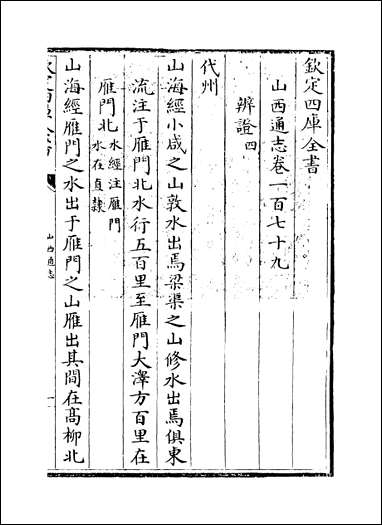 欽定四庫全書
山西通志卷一百七十九
辨證四
代州
山海經小咸之山敦水出焉梁渠之山修水出焉俱東
流注于雁門北水行五百里至雁門大澤方百里在
雁門北水經注雁門
水在直隸
山海經雁門之水出于雁門之山雁出其間在髙柳北
山西通志